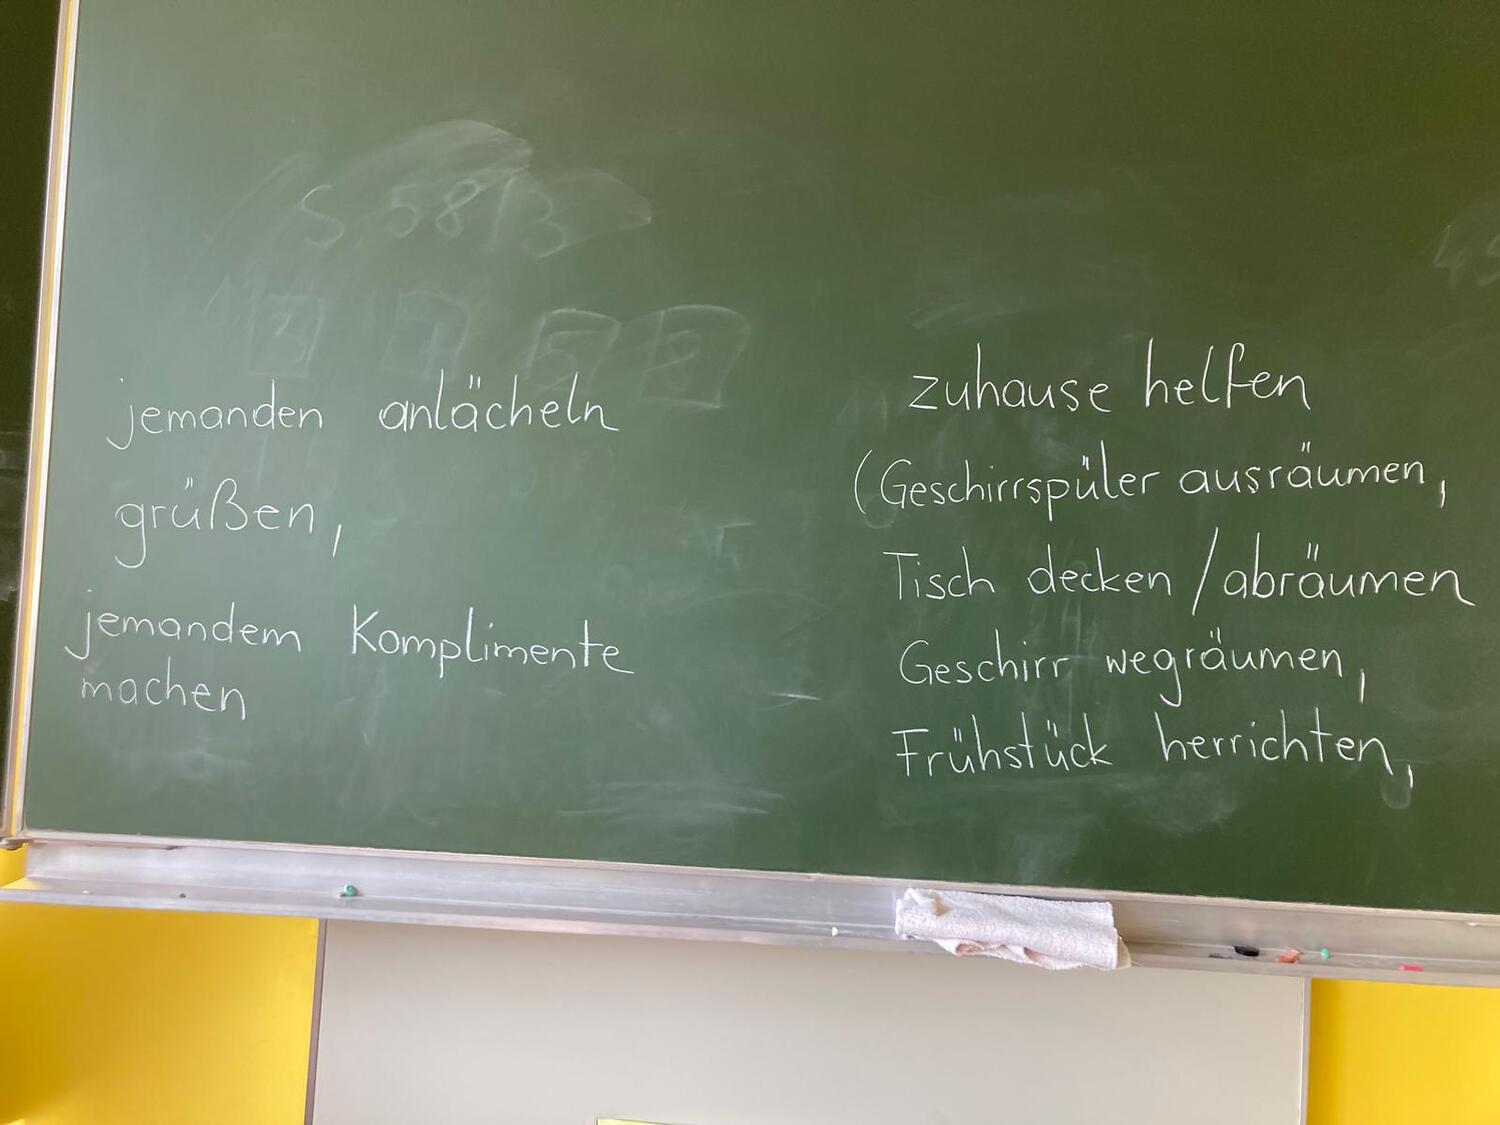 jemanden anlächeln
grüßen,
jemandem Komplimente
machen
zuhause helfen
(Geschirrspüler ausräumen,
Tisch decken / abräumen
Geschirr wegräumen,
Frühstück herrichten,